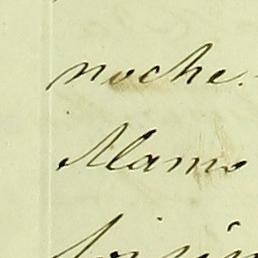 noche.
Alamo